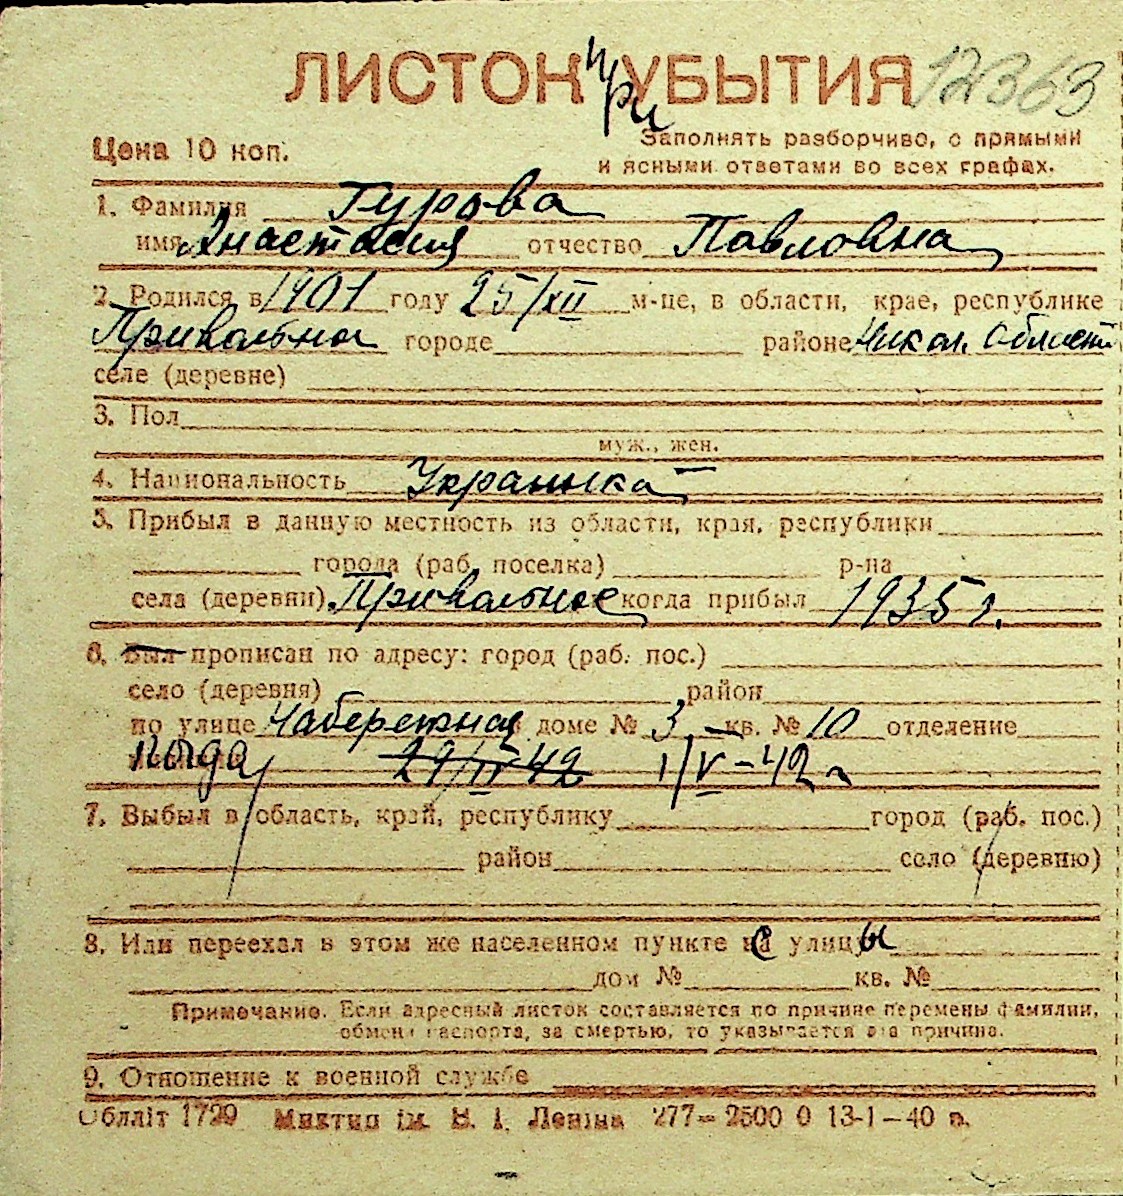 ЛИСТОК УБЫТИЯ 12363
при
Цена 10 коп.
Заполнять разборчиво, с прямыми
и ясными ответами во всех графах.
1. Фамилия Гурова
имя Анастасия отчество Павловна
2. Родился в 1901 году 25/XII м-це, в области, крае, республике
Привольное городе районе Никол. области
селе (деревне)
3. Пол
муж., жен.
4. Национальность Украинка
5. Прибыл в данную местность из области, края, республики
города (раб. поселка) р-на
села (деревни) Привольное когда прибыл 1935 г.
6. Был прописан по адресу: город (раб. пос.)
село (деревня) район
по улице Набережная доме № 3 кв. № 10 отделение
29/IV 42 1/V-42 г
7. Выбыл в область, край, республику город (раб. пос.)
район село (деревню)
8. Или переехал в этом же населенном пункте с улицы
дом № кв. №
Примечание. Если адресный листок составляется по причине перемены фамилии,
обмена паспорта, за смертью, то указывается эта причина.
9. Отношение к военной службе
Обллiт 1729 Миктип iм. В. І. Ленiна 277-2500 0 13-1-40 п.